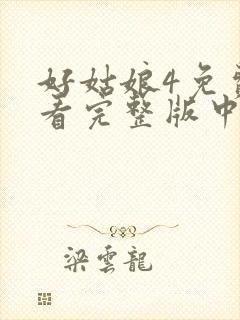 好姑娘4免费
看完整版中
梁雲龍